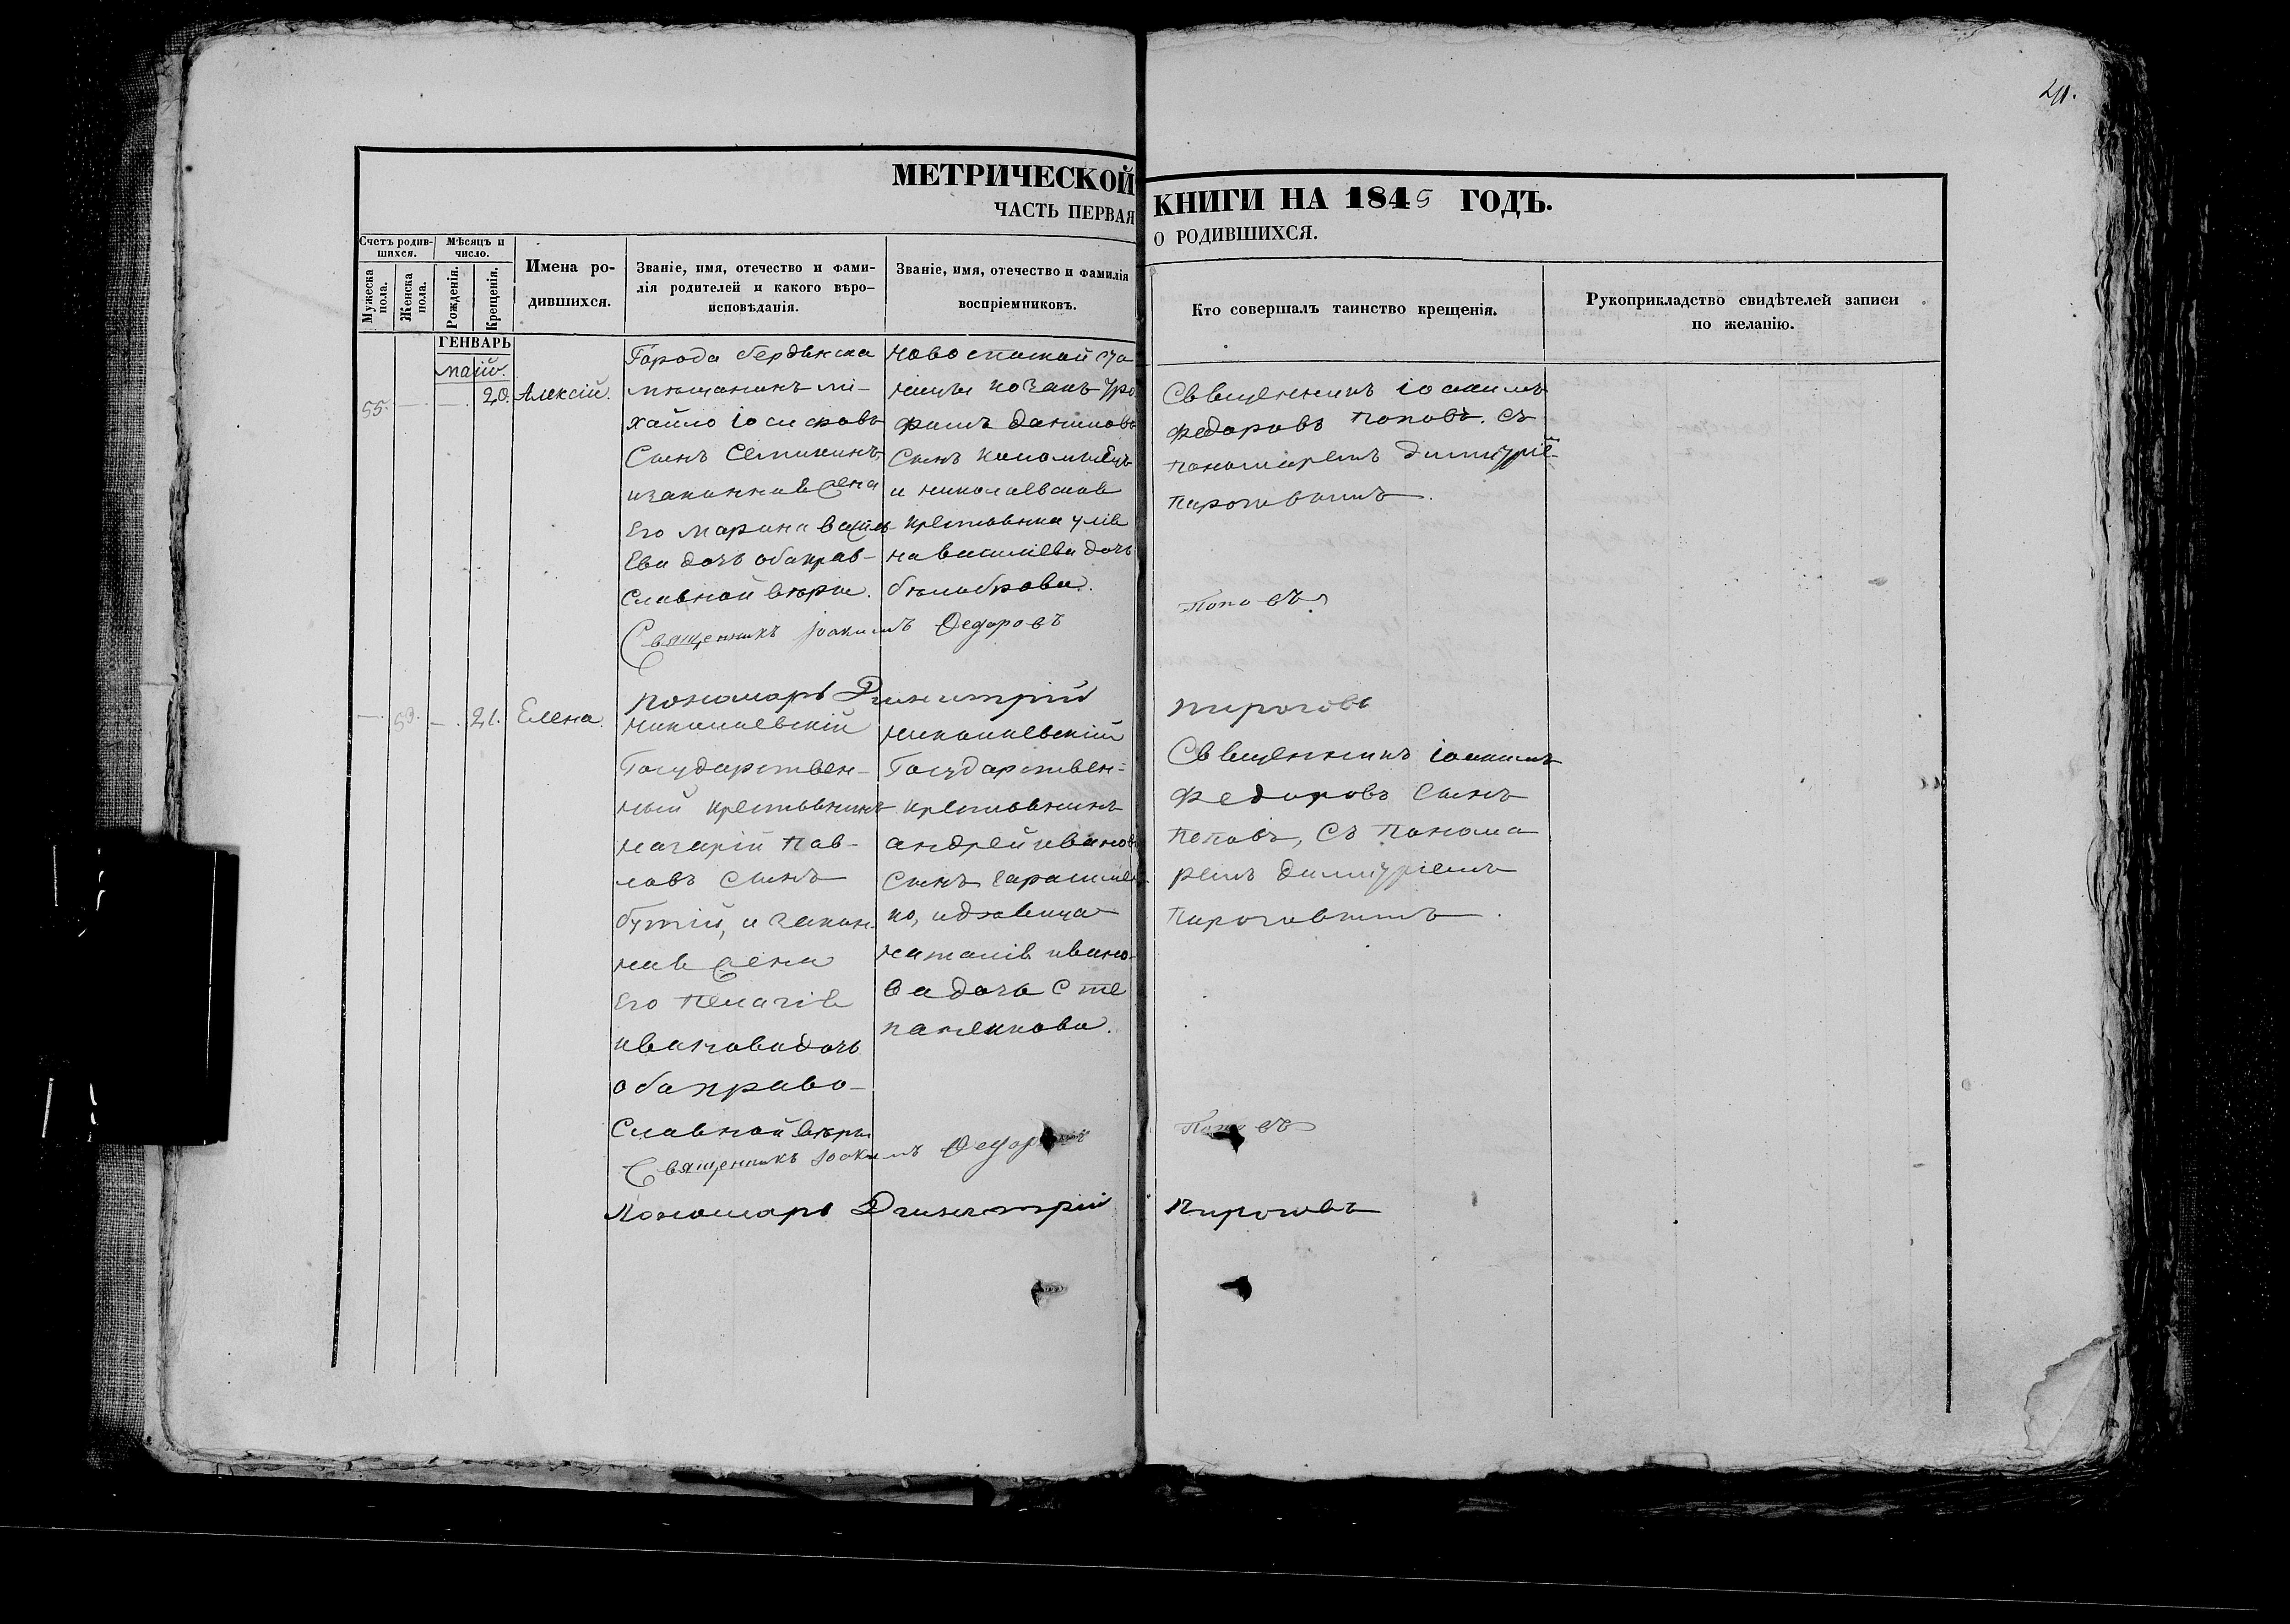 41.
МЕТРИЧЕСКОЙ КНИГИ НА 1845 ГОДЪ.
ЧАСТЬ ПЕРВАЯ О РОДИВШИХСЯ.
Счетъ родившихся.
Мужеска пола.
Женска пола.
Мѣсяцъ и число.
Рожденія.
Крещенія.
Имена родившихся.
Званіе, имя, отечество и фами-
лія родителей и какого вѣро-
исповѣданія.
Званіе, имя, отечество и фамилія
воспріемниковъ.
Кто совершалъ таинство крещенія.
Рукоприкладство свидѣтелей записи
по желанію.
ГЕНВАРЬ
маій.
55. — — 20. Алексій.
Города бердянска
мѣщанинъ ми-
хайло іосифовъ
Сынъ
изаконная жена
Его марина васил
Ева дочь оба прав-
Славной вѣры.
новоспаской ста
ницы козакъ тро
фимъ даниловъ
Сынъ коломыецъ
и николаевская
крестьянка улія
на василіева дочь
бѣлоброва.
Священникъ іоакимъ
Федоровъ Поповъ. Съ
пономаремъ димитріе
пироговымъ.
Священникъ Іоакимъ Федоровъ Поповъ
пономарь Димитрій пироговъ
— 53. — 21. Елена.
николаевскій
Государствен-
ный крестьянинъ
назарій Пав-
ловъ Сынъ
бутій, и закон-
ная жена
Его Пелагія
ивановадочь
оба право-
Славной вѣры
николаевскій
Государствен-
крестьянинъ
андрей иванов
Сынъ Гарасимен
ко, идѣвица
наталія ивано-
ва дочь Сте
паненкова.
Священникъ іоакимъ
Федоровъ Сынъ
Поповъ, Съ понома
ремъ димитріемъ
Пироговымъ.
Священникъ Іоакимъ Федоровъ Поповъ
Пономарь Димитрій пироговъ